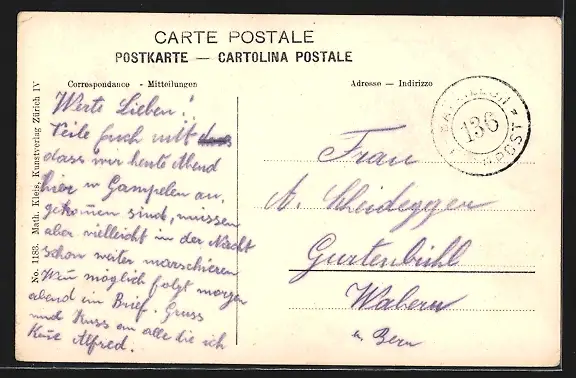 CARTE POSTALE
POSTKARTE — CARTOLINA POSTALE
Correspondance - Mitteilungen
Adresse — Indirizzo
Werte Lieben!
Teile Euch mit
dass wir heute Abend
hier in Gampelen an,
gekomen sind, müssen
aber vielleicht in der Nacht
schon weiter marschieren
Wen möglich folgt morgen
abend ein Brief. Gruss
und Kuss an alle die ich
Alfred.
Frau
A. Scheidegger
Gurtenbühl
Wabern
b. Bern
136
POST
No. 1183. Math. Kleis, Kunstverlag Zürich IV